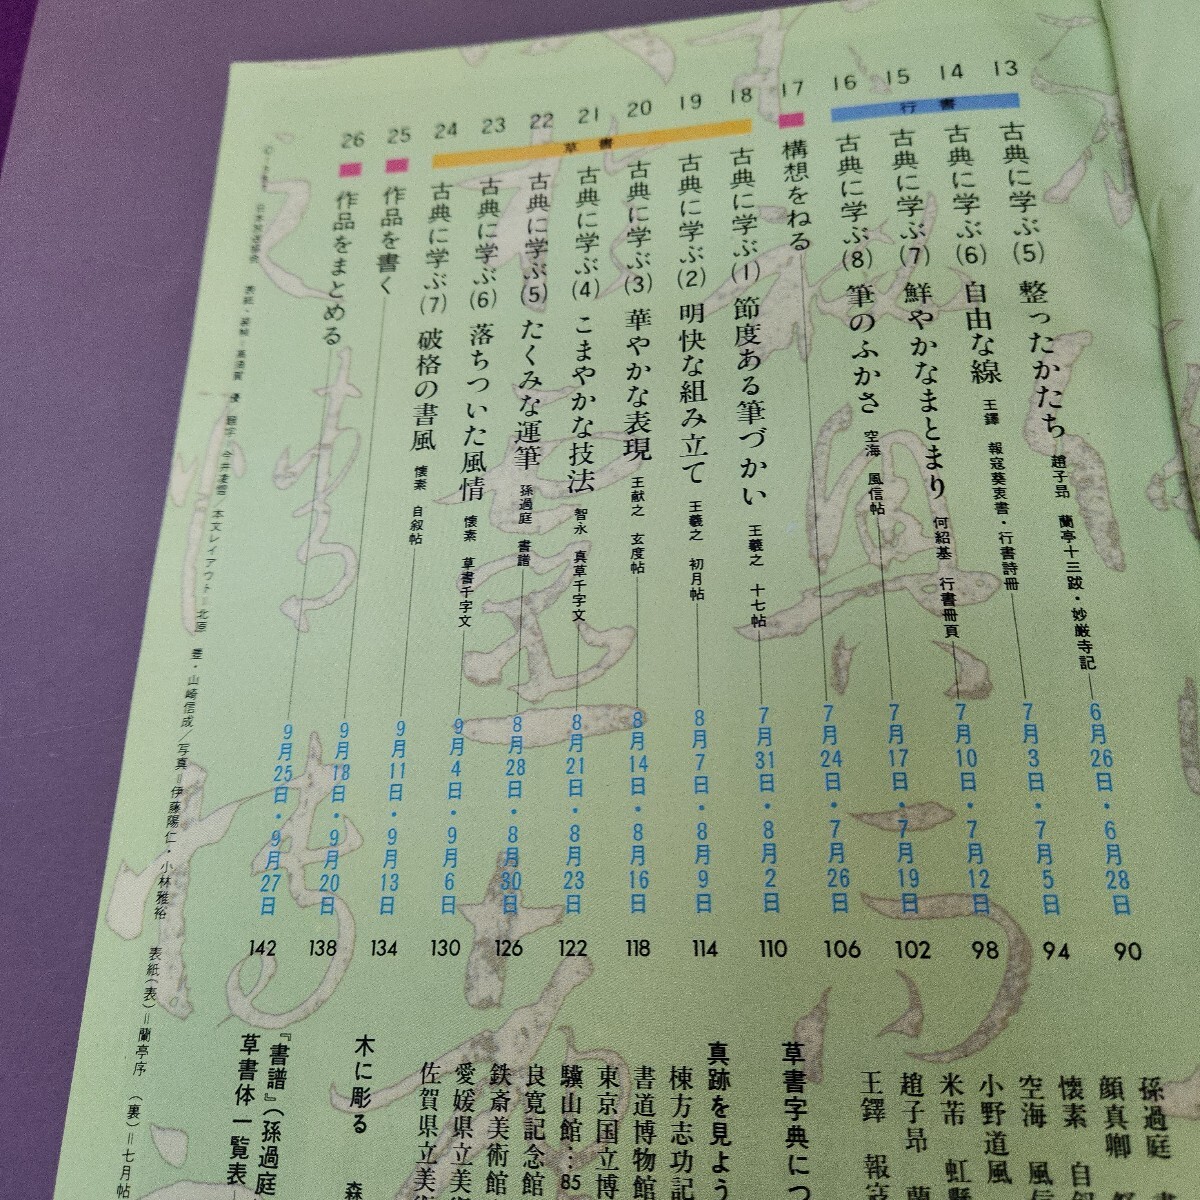 行書
13 古典に学ぶ(5) 整ったかたち 趙子昂 蘭亭十三跋・妙厳寺記 6月26日・6月28日 90
14 古典に学ぶ(6) 自由な線 王鐸 報寇葵衷書・行書詩冊 7月3日・7月5日 94
15 古典に学ぶ(7) 鮮やかなまとまり 何紹基 行書冊頁 7月10日・7月12日 98
16 古典に学ぶ(8) 筆のふかさ 空海 風信帖 7月17日・7月19日 102
17 構想をねる 7月24日・7月26日 106
草書
18 古典に学ぶ(1) 節度ある筆づかい 王羲之 十七帖 7月31日・8月2日 110
19 古典に学ぶ(2) 明快な組み立て 王羲之 初月帖 8月7日・8月9日 114
20 古典に学ぶ(3) 華やかな表現 王献之 玄度帖 8月14日・8月16日 118
21 古典に学ぶ(4) こまやかな技法 智永 真草千字文 8月21日・8月23日 122
22 古典に学ぶ(5) たくみな運筆 孫過庭 書譜 8月28日・8月30日 126
23 古典に学ぶ(6) 落ちついた風情 懐素 草書千字文 9月4日・9月6日 130
24 古典に学ぶ(7) 破格の書風 懐素 自叙帖 9月11日・9月13日 134
25 作品を書く 9月18日・9月20日 138
26 作品をまとめる 9月25日・9月27日 142
孫過庭
顔真卿
懐素 自叙
空海 風信
小野道風
米芾 虹縣
趙子昂 蘭
王鐸 報寇
草書字典につ
真跡を見よう
棟方志功記
書道博物館
東京国立博
驥山館…85
良寛記念館
鉄斎美術館
愛媛県立美
佐賀県立美術
木に彫る 森
『書譜』(孫過庭
草書体一覧表
日本放送協会 表紙・装幀=高 優 題字=今井凌雪 本文レイアウト=北原 豊・山崎信成/写真=伊藤陽仁・小林雅裕 表紙(表)=蘭亭序 (裏)=七月帖